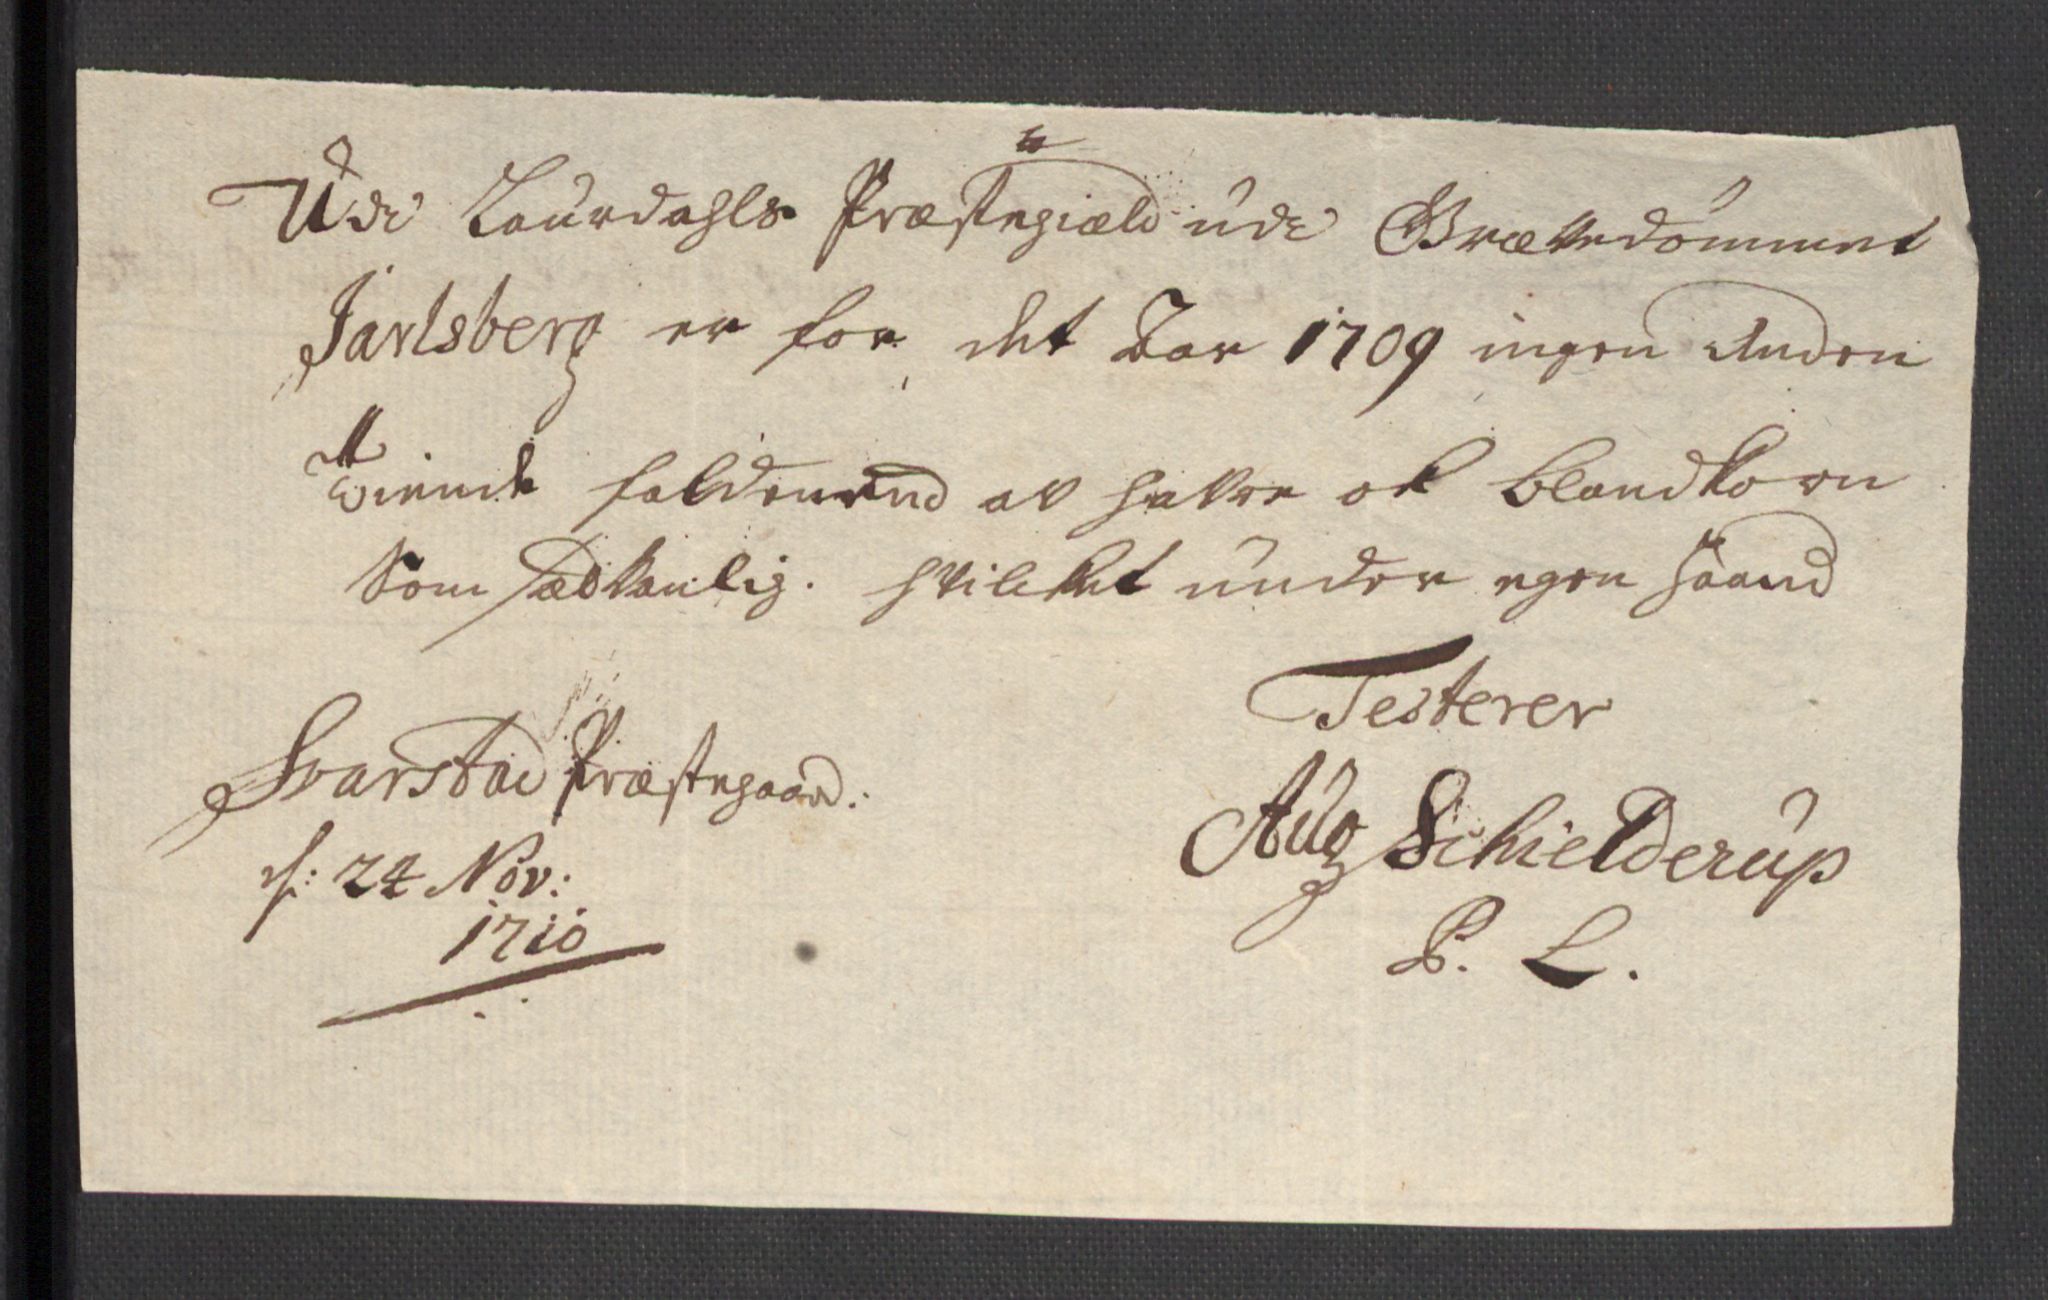 Udi Laurdahls Præstegiæld udi Grævedømmet
Jarlsberg er for det Aar 1709 ingen Anden
Tiende falden end av Havre ok Blandkorn
Som sædvanlig. Hvilcket under egen Haand
Testerer
Svarstad Præstegaard.
d: 24 Nov:
1710
Aug Schielderup
P. L.